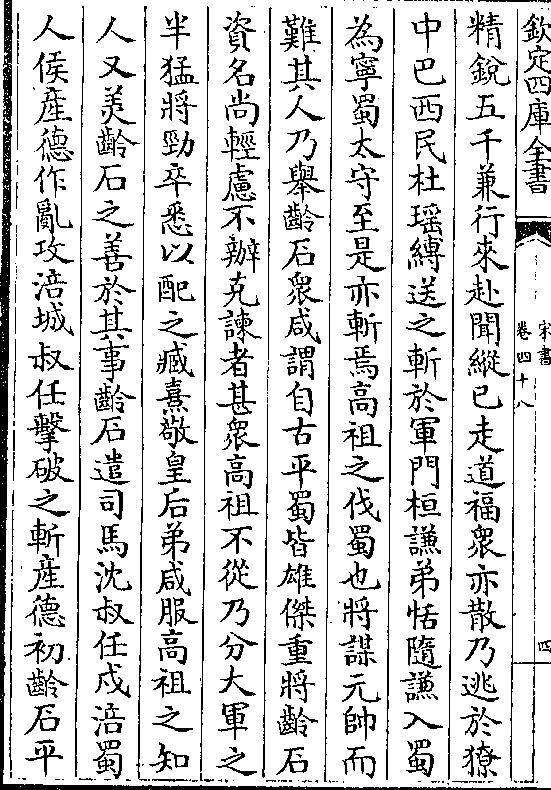 欽定四庫全書
宋書
卷四十八
四
精銳五千兼行來赴聞縱已走道福衆亦散乃逃於獠
中巴西民杜瑶縛送之斬於軍門桓謙弟恬隨謙入蜀
為寧蜀太守至是亦斬焉高祖之伐蜀也將謀元帥而
難其人乃舉齡石衆咸謂自古平蜀皆雄傑重將齡石
資名尚輕慮不辦克諫者甚衆高祖不從乃分大軍之
半猛將勁卒悉以配之臧熹敬皇后弟咸服高祖之知
人又美齡石之善於其事齡石遣司馬沈叔任戍涪蜀
人侯産德作亂攻涪城叔任擊破之斬産德初齡石平